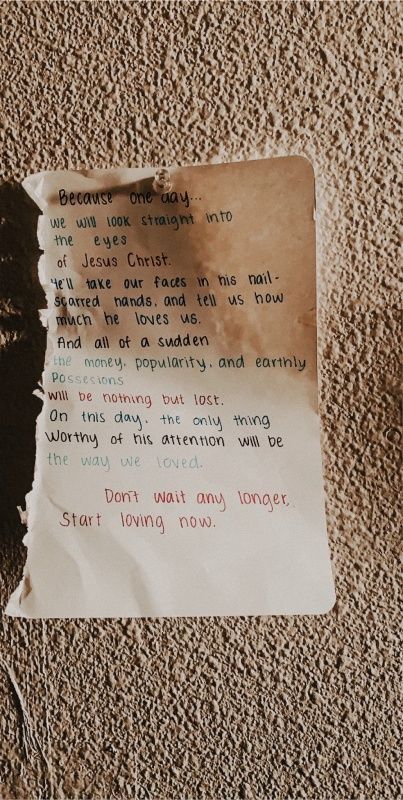 Because one day...
we will look straight into
the eyes
of Jesus Christ.
He'll take our faces in his nail-
scarred hands, and tell us how
much he loves us.
And all of a sudden
the money, popularity, and earthly
Possesions
will be nothing but lost.
On this day, the only thing
worthy of his attention will be
the way we loved.
Don't wait any longer,
Start loving now.